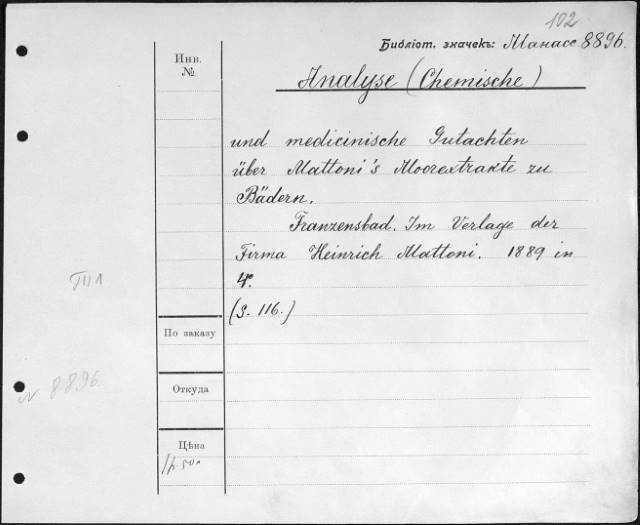 102
Библіот. значекъ: Манасс. 8896.
Инв.
№
Analyse (Chemische)
und medicinische Gutachten
über Mattoni's Moorextrakte zu
Bädern.
Franzensbad. Im Verlage der
Firma Heinrich Mattoni. 1889 in
4º.
(S. 116.)
По заказу
N 8896.
Откуда
Цѣна